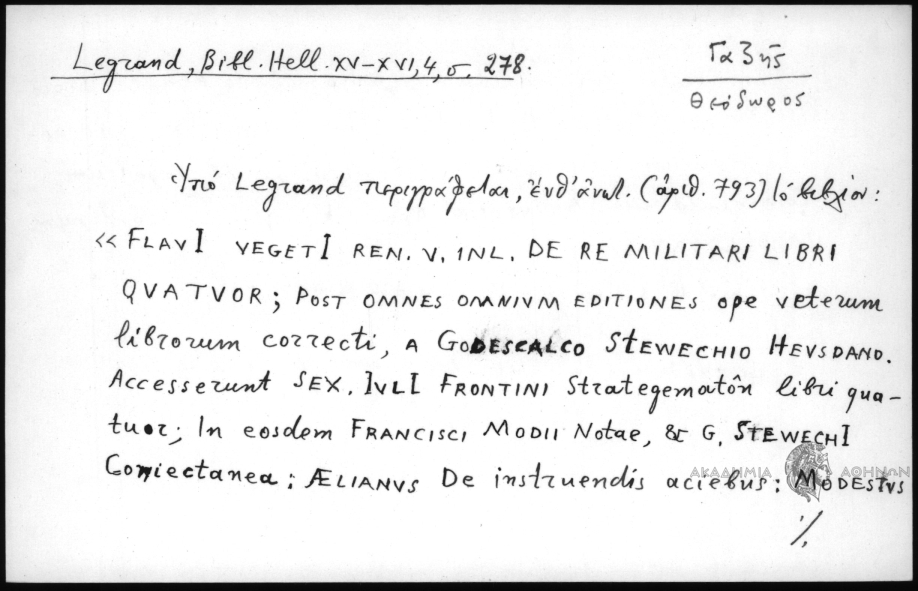 Legrand, Bibl. Hell. XV–XVI, 4, σ. 278.
Γαζῆς
Θεόδωρος
Ὑπό Legrand περιγράφεται, ἐνθ' ἀνωτ. (ἀριθ. 793) τό βιβλίον:
«FLAVI VEGETI REN. V. INL. DE RE MILITARI LIBRI
QVATVOR; POST OMNES OMNIVM EDITIONES ope veterum
librorum correcti, A GODESCALCO STEWECHIO HEVSDANO.
Accesserunt SEX. IVLI FRONTINI Strategematôn libri qua–
tuor; In eosdem FRANCISCI MODII Notae, & G. STEWECHI
Coniectanea; ÆLIANVS De instruendis aciebus; MODESTVS
ΑΚΑΔΗΜΙΑ ΑΘΗΝΩΝ
./.